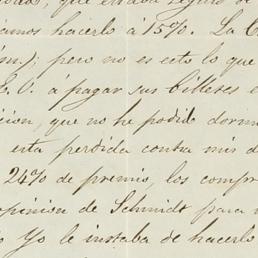 que estaba seguro de
amos hacerlo á 15%. La C
m.); pero no es esto lo que
E. U. á pagar sus billetes e
icion, que no he podido dormi
esta perdida contra mis d
24% de premio, los compr
opinion de Schmidt para
o Yo le instaba de hacerlo